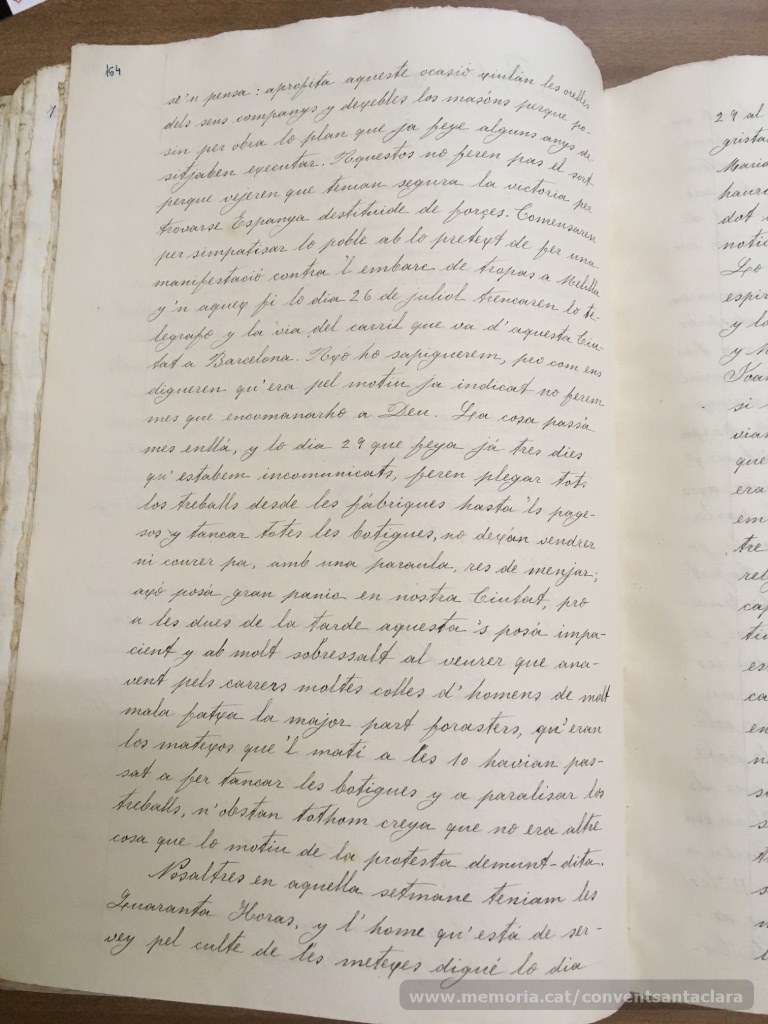 164
se'n pensa: aprofita aqueste ocasió xiulán les orelles
dels seus companys y dexebles los masóns perque po-
sin per obra lo plan que ja feye alguns anys de
sitjaben executar. Aquestos no feren pas el sort
perque vejeren que tenian segura la victoria per
trovarse Espanya destituide de forçes. Comensaren
per simpatisar lo poble ab lo pretext de fer una
manifestació contra 'l embarc de tropas a Melilla
y 'n aquex fi lo dia 26 de juliol trencaren lo te-
legrafo y la via del carril que va d'aquesta Ciu-
tat a Barcelona. Axo ho sapiguerem, pro com ens
digueren qu'era pel motiu ja indicat no ferem
mes que encomanarho a Deu. La cosa passà
mes enllá, y lo dia 29 que feya já tres dies
qu'estabem incomunicats, feren plegar tots
los treballs desde les fábriques hasta 'ls page-
sos y tancar totes les botigues, no dexán vendrer
ni courer pa, amb una paraula, res de menjar;
axó posá gran panic en nostra Ciutat, pro
a les dues de la tarde aquesta 's posá impa-
cient y ab molt sobressalt al veurer que ana-
vent pels carrers moltes colles d'homens de molt
mala fatxa la major part forasters, qu'eran
los matexos que 'l matí a les 10 havian pas-
sat a fer tancar les botigues y a paralisar los
treballs, n'obstan tothom creya que no era altre
cosa que lo motiu de la protesta demunt-dita.
Nosaltres en aquella setmane teniam les
Quaranta Horas, y l'home qu'está de ser-
vey pel culte de les metexes digué lo dia
29 al
grista
Maria
haur
dot
notic
Lo
espir
y lo
Joa
si
vian
que
era
em
tre
www.memoria.cat/conventsantaclara